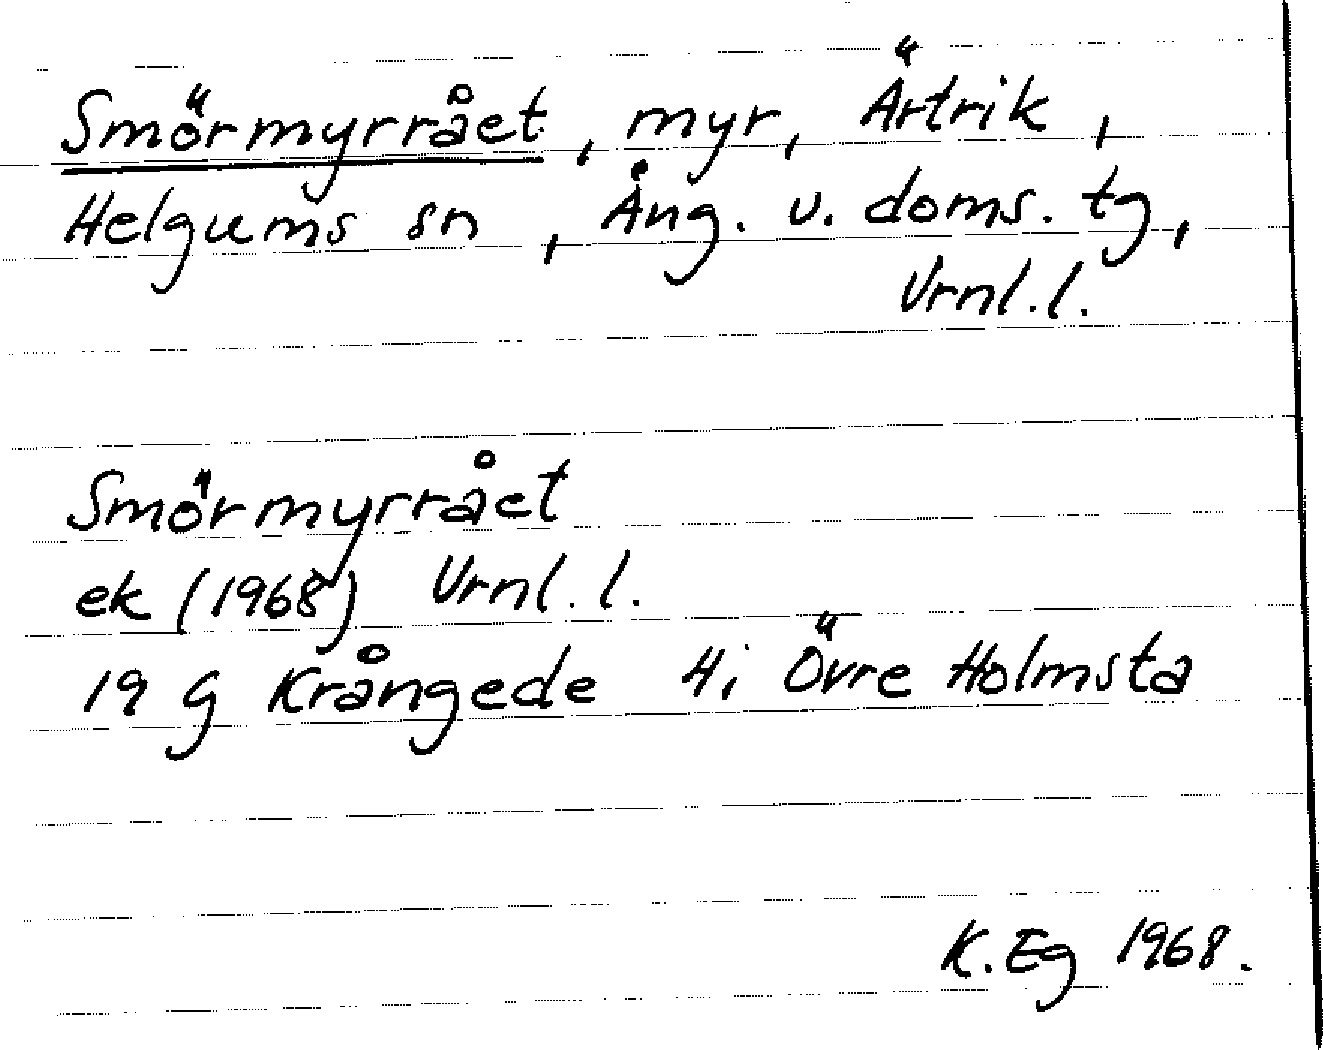 Smörmyrrået, myr, Ärtrik,
Helgums sn, Ång. v. doms. tg,
Vrnl.l.
Smörmyrrået
ek (1968) Vrnl. l.
19 G Krångede 4i Övre Holmsta
K. Eg 1968.